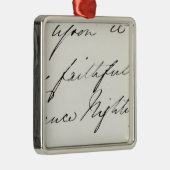 upon a
faithful
ence Nighti